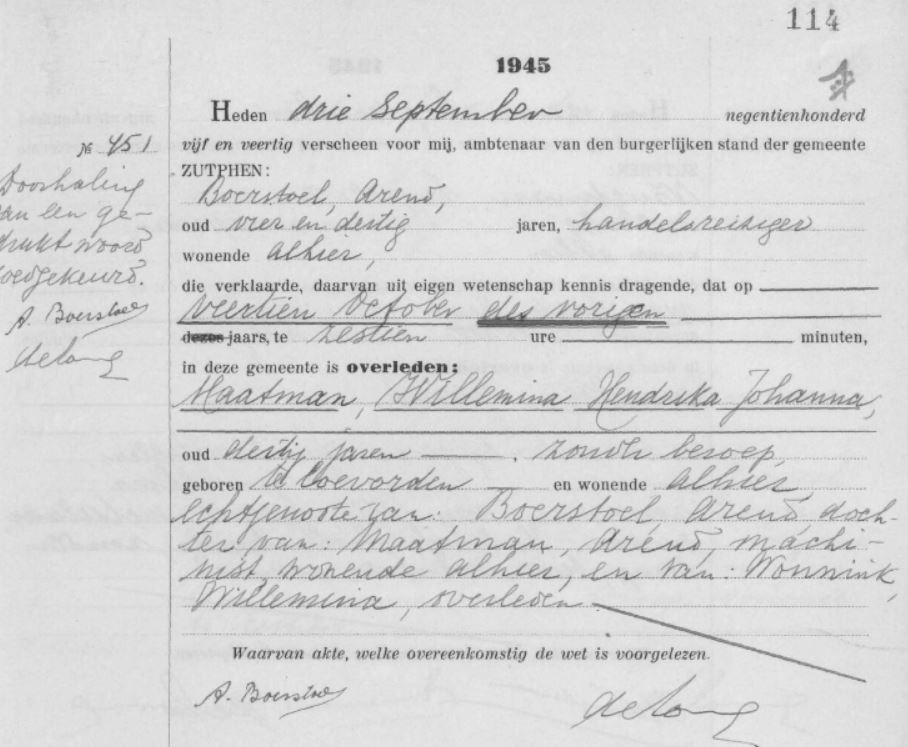 114
1945
Heden drie September negentienhonderd
№ 451
vijf en veertig verscheen voor mij, ambtenaar van den burgerlijken stand der gemeente
ZUTPHEN:
Doorhaling
van een ge-
drukt woord
goedgekeurd.
A. Boerstoel
de Jong
Boerstoel, Arend,
oud vier en dertig jaren, handelsreiziger
wonende alhier,
die verklaarde, daarvan uit eigen wetenschap kennis dragende, dat op
veertien October des vorigen
dezes jaars, te zestien ure minuten,
in deze gemeente is overleden:
Maatman, Willemina Hendrika Johanna,
oud dertig jaren, zonder beroep,
geboren te Coevorden en wonende alhier,
echtgenoote van: Boerstoel, Arend, doch-
ter van: Maatman, Arend, machi-
nist, wonende alhier, en van: Wonnink,
Willemina, overleden
Waarvan akte, welke overeenkomstig de wet is voorgelezen.
A. Boerstoel
de Jong